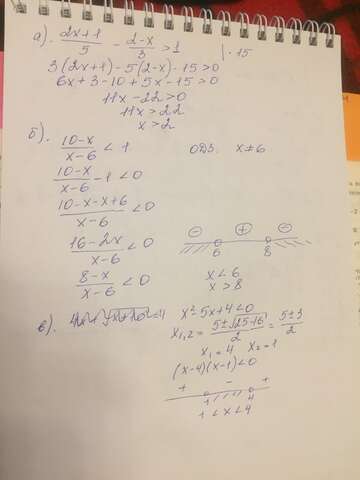 а). (2x+1)/5 - (2-x)/3 > 1 | · 15
3(2x+1)-5(2-x)-15>0
6x+3-10+5x-15>0
11x-22>0
11x>22
x>2
б). (10-x)/(x-6) < 1 ОДЗ. x≠6
(10-x)/(x-6) -1 <0
(10-x-x+6)/(x-6) <0
(16-2x)/(x-6) <0
(8-x)/(x-6) <0
⊖ ⊕ ⊖
6 8
x<6
x>8
в).
x²-5x+4<0
x₁,₂ = (5±√(25+16))/2 = (5±3)/2
x₁=4 x₂=1
(x-4)(x-1)<0
+ - +
1 4
1<x<4